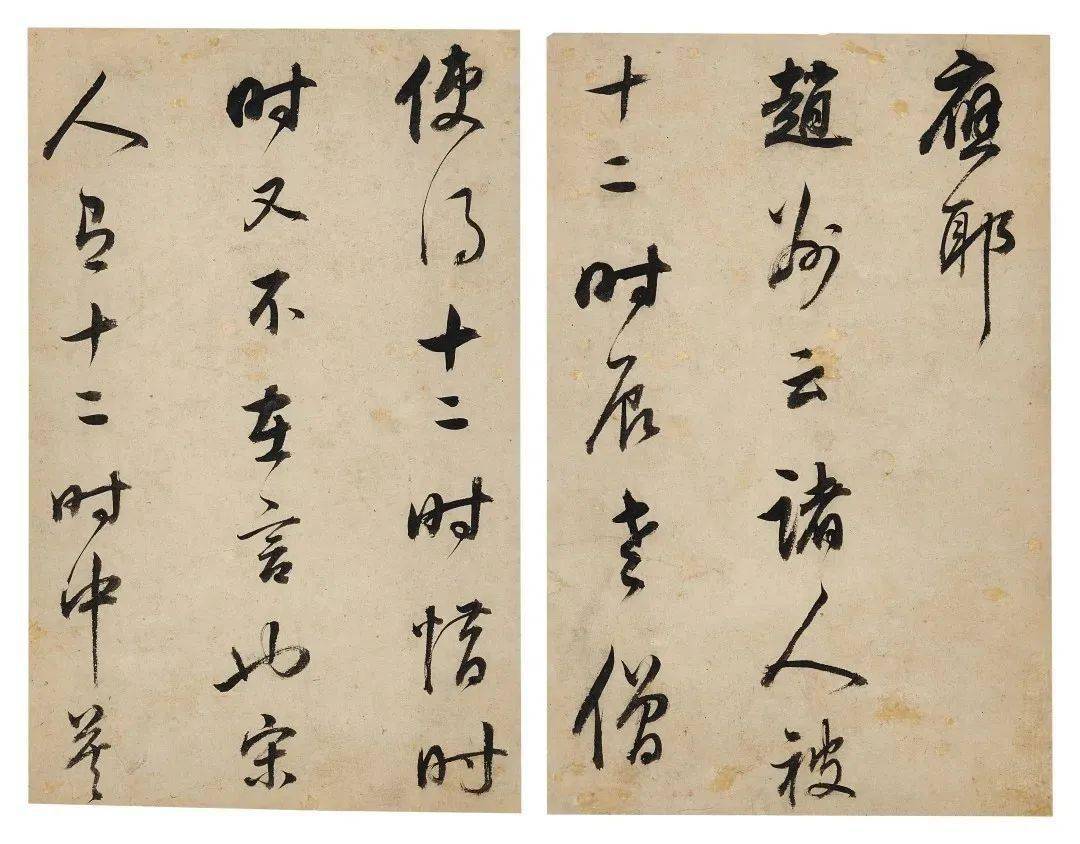 應耶
趙州云諸人被
十二時辰老僧
使得十二時惜時
時又不在言也宋
人有十二時中莫